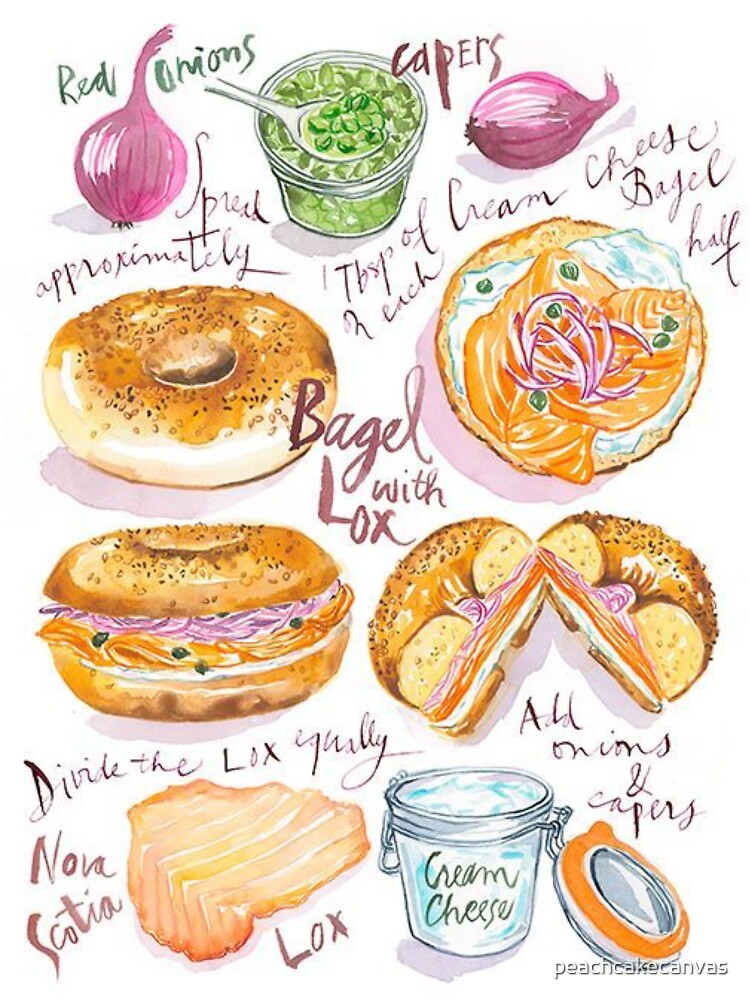 Red onions
capers
Spread
approximately
1 Tbsp of Cream Cheese
on each Bagel
half
Bagel
with
Lox
Divide the Lox equally
Add
onions
&
capers
Nova
Scotia
Lox
Cream
Cheese
peachcakecanvas